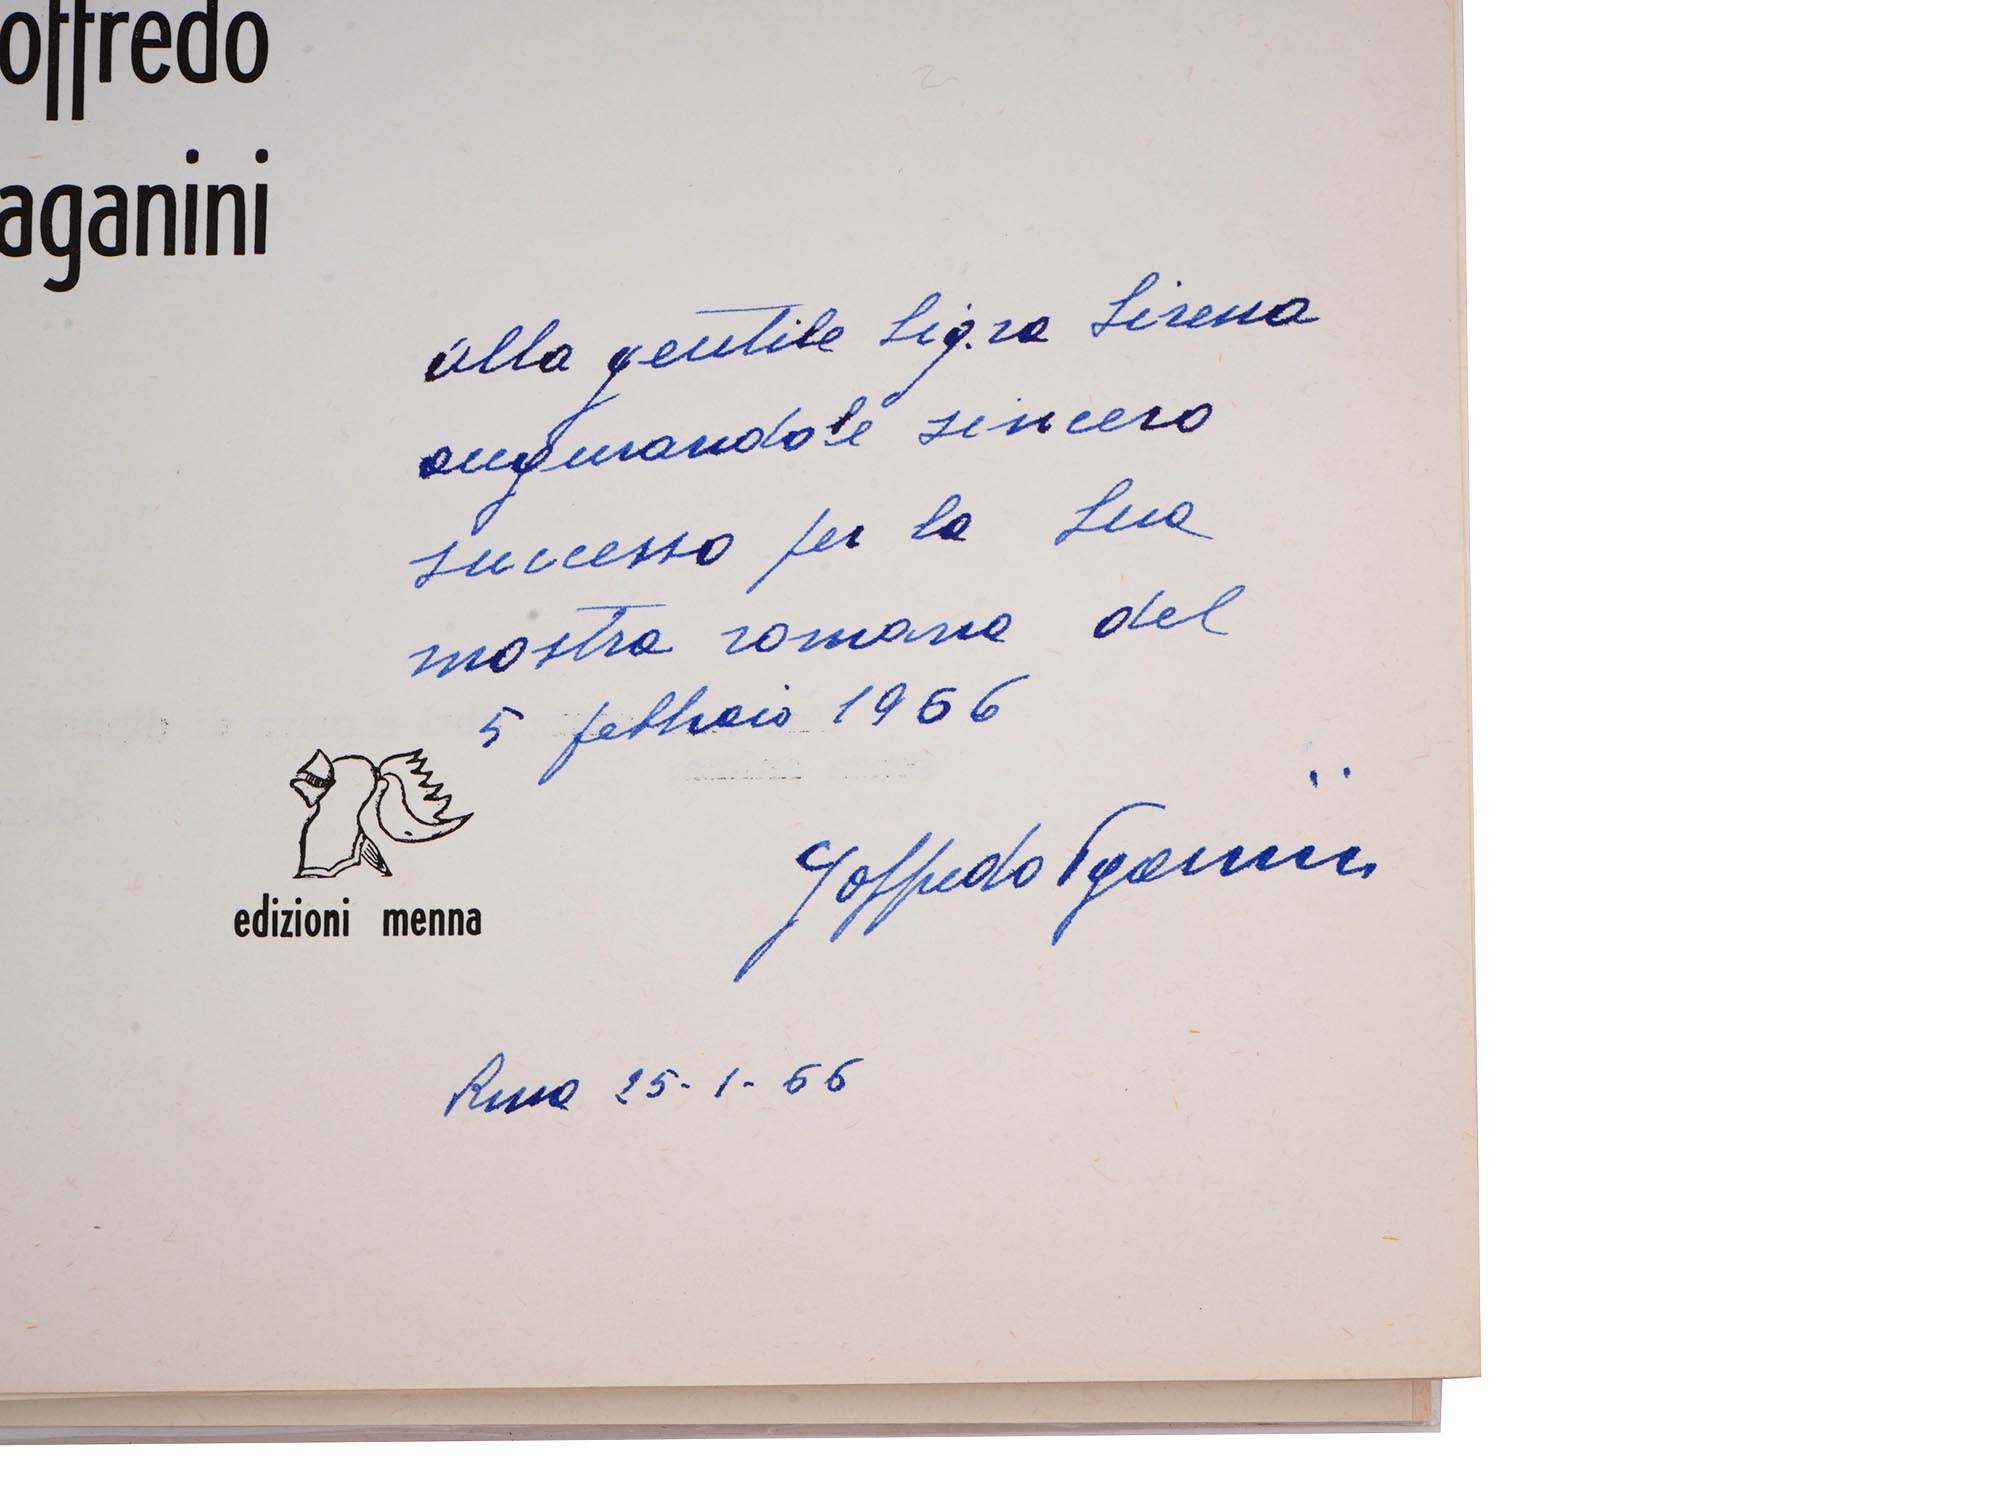 offredo
aganini
Alla gentile Sig.ra Sirena
augurandole sincero
successo per la Sua
mostra romana del
5 febbraio 1966
Goffredo Paganini
edizioni menna
Roma 25-1-66